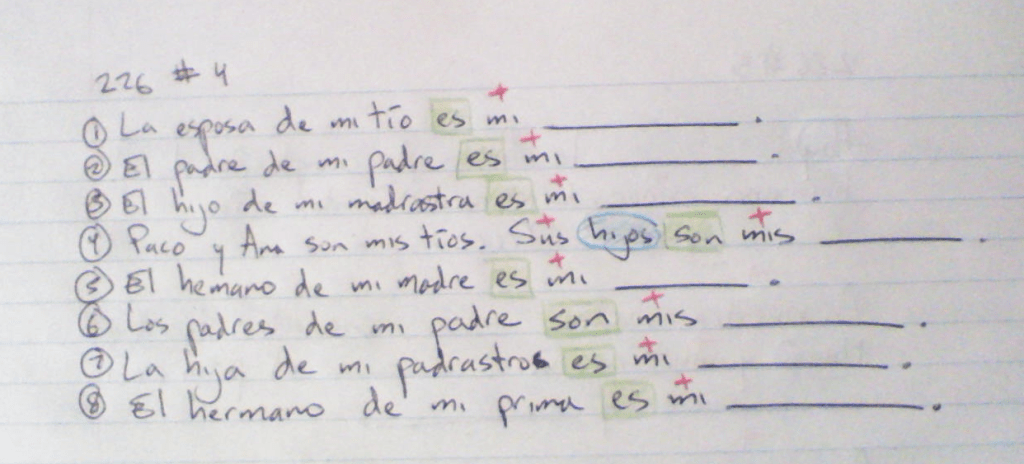 226 # 4
① La esposa de mi tío es mi __________.
② El padre de mi padre es mi __________.
③ El hijo de mi madrastra es mi __________.
④ Paco y Ana son mis tíos. Sus hijos son mis __________.
⑤ El hemano de mi madre es mi __________.
⑥ Los padres de mi padre son mis __________.
⑦ La hija de mi padrastros es mi __________.
⑧ El hermano de mi prima es mi __________.